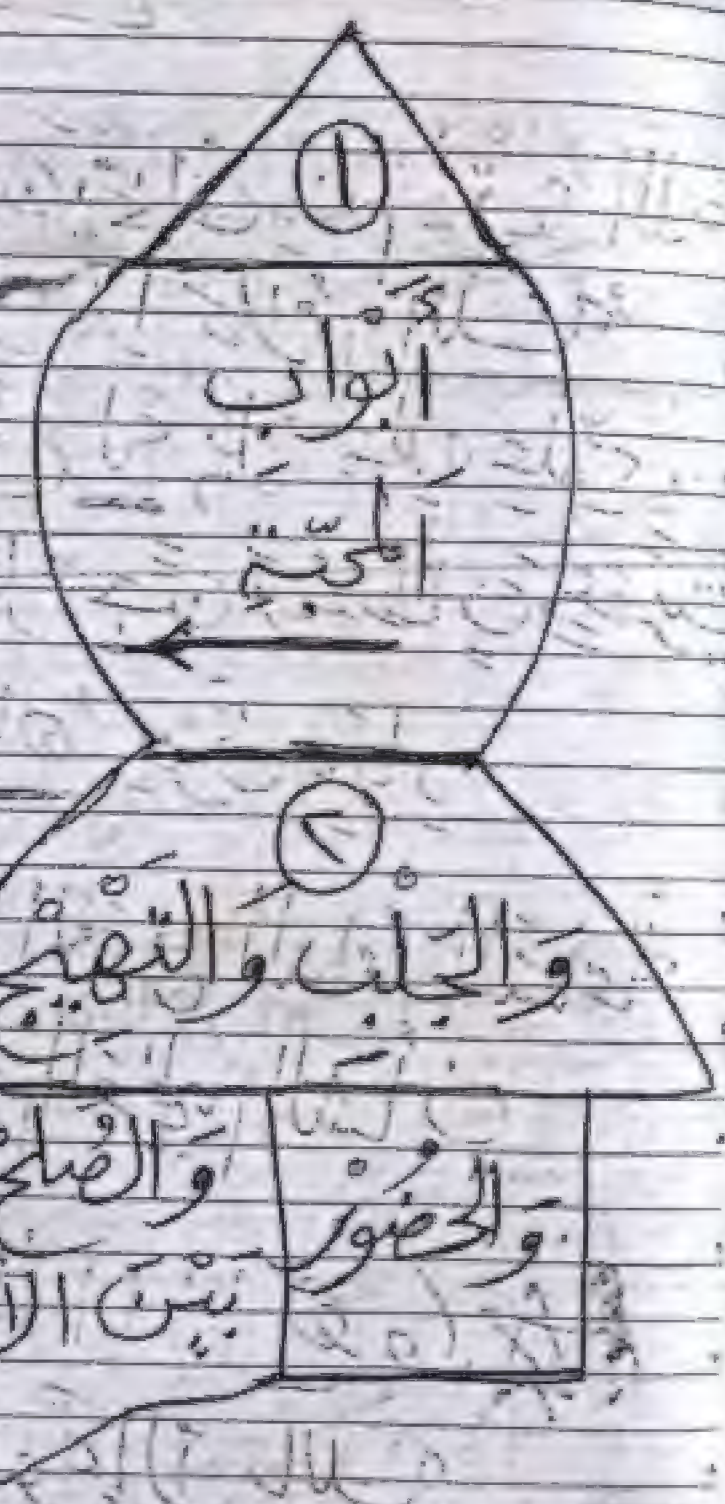 ١
أَبْوَابُ
الْمَحَبَّةِ
٢
وَالْجَلْبْ وَالتَّهْيِيجْ
وَالْحُضُورْ
وَالصُّلْحْ
بَيْنَ